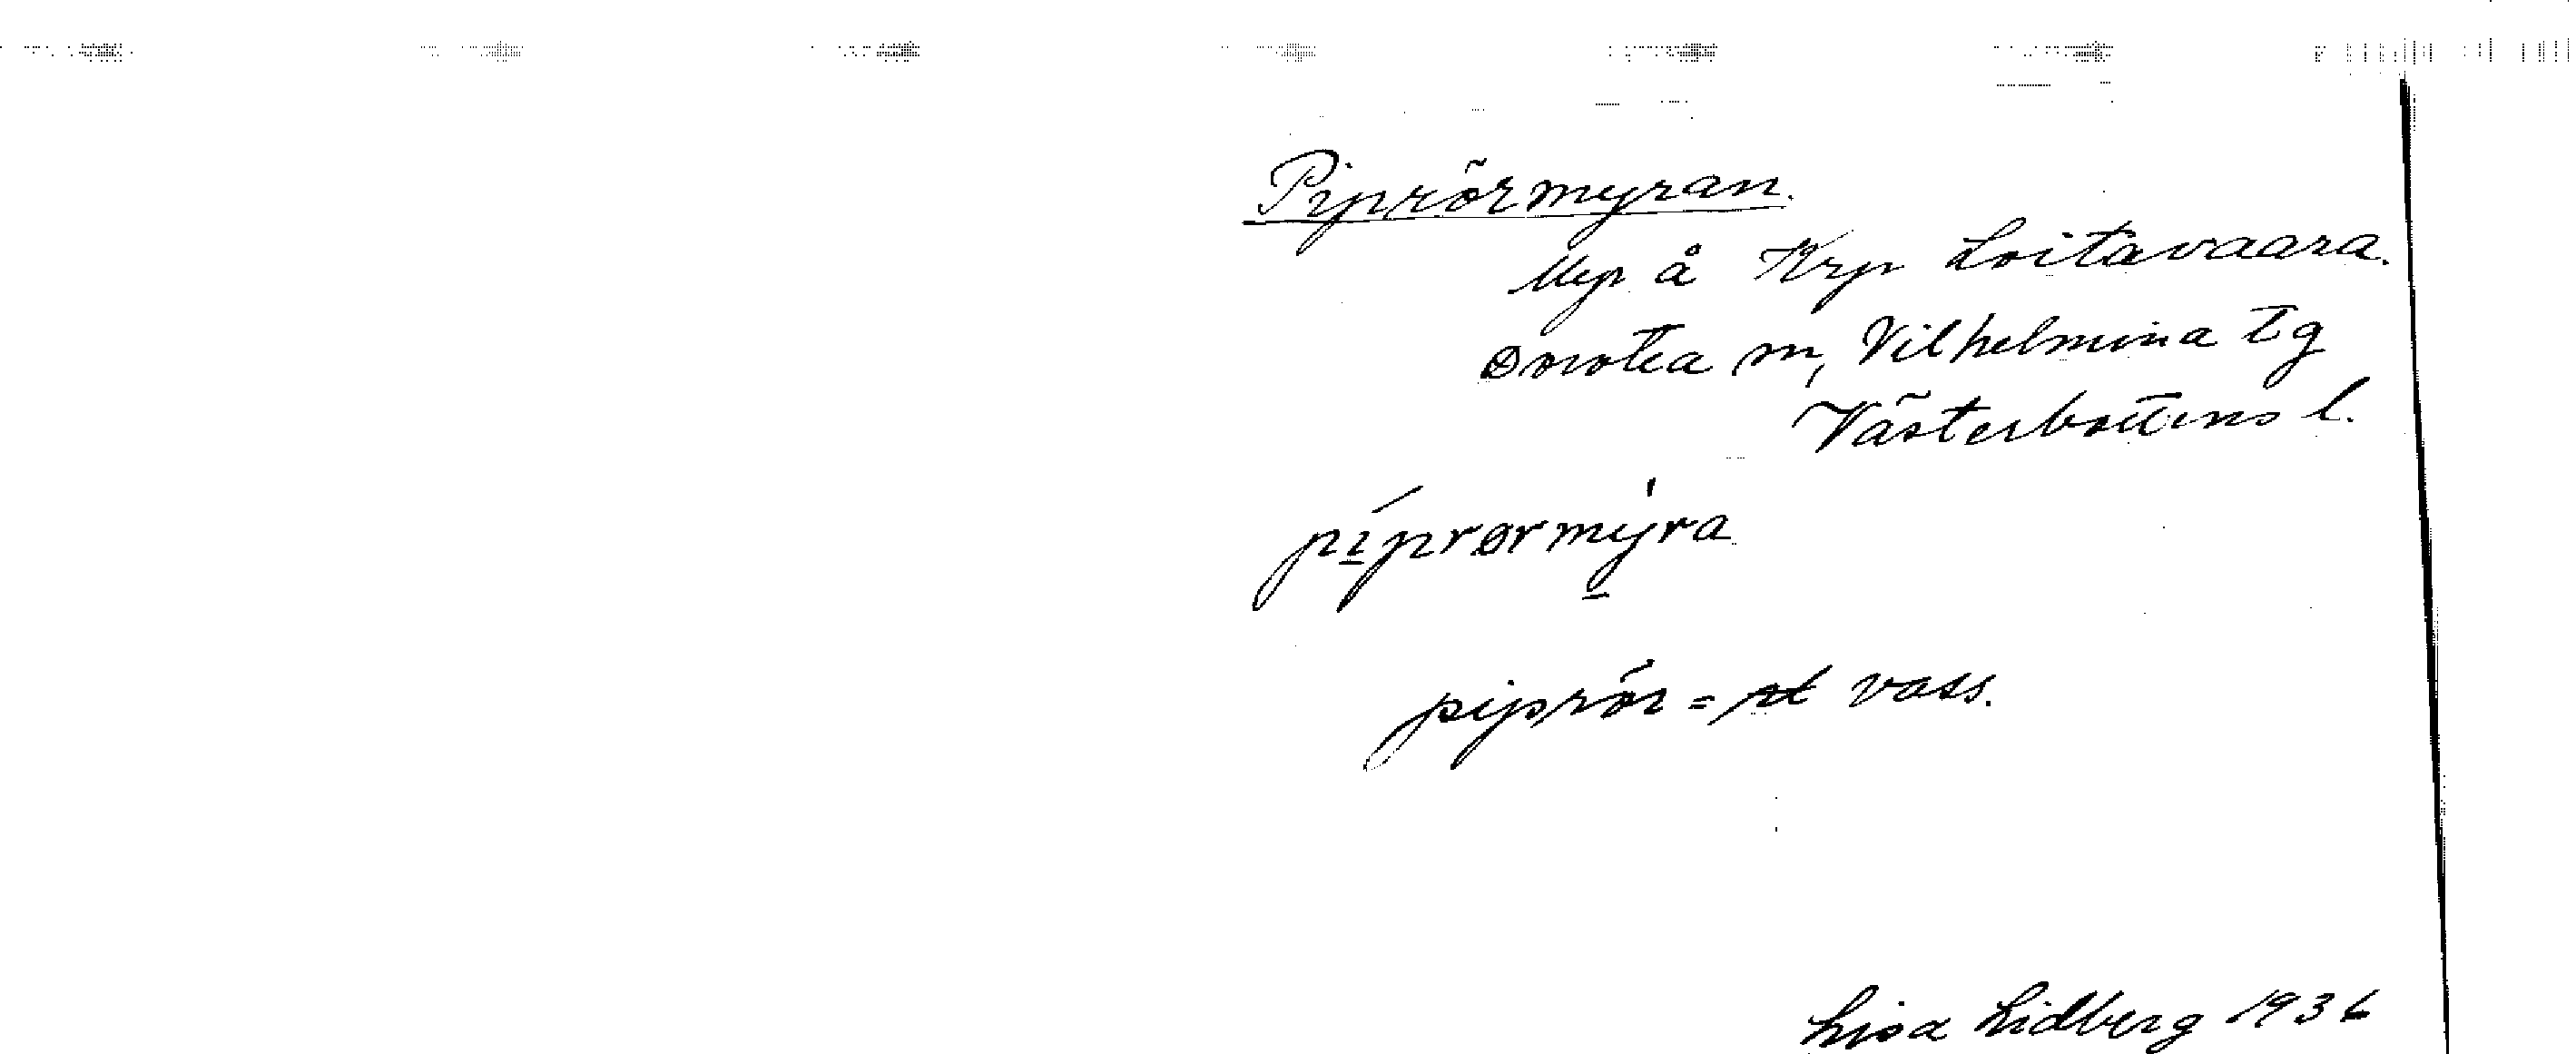 Piprörmyran.
Myr å Krp Loitavaara.
Dorotea sn, Vilhelmina tg
Västerbottens l.
pi̱prørmy̱ra
piprör = vass.
Lisa Lidberg 1936